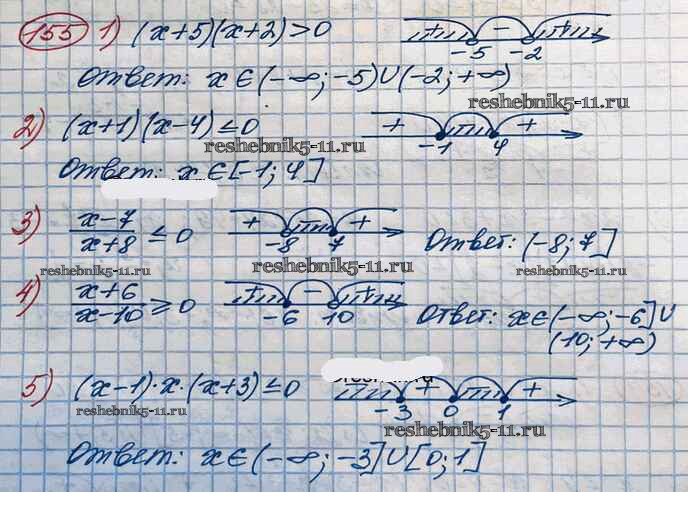 155 1) (x+5)(x+2)>0 + - + -5 -2
Ответ: x∈(-∞;-5)∪(-2;+∞)
reshebnik5-11.ru
2) (x+1)(x-4)≤0 + + -1 4
reshebnik5-11.ru
Ответ: x∈[-1;4]
3) x-7/x+8 ≤ 0 + + -8 7 Ответ: (-8;7]
reshebnik5-11.ru reshebnik5-11.ru reshebnik5-11.ru
4) x+6/x-10 ≥ 0 + - + -6 10 Ответ: x∈(-∞;-6]∪
(10;+∞)
5) (x-1)·x·(x+3)≤0 + + -3 0 1
reshebnik5-11.ru
reshebnik5-11.ru
Ответ: x∈(-∞;-3]∪[0;1]